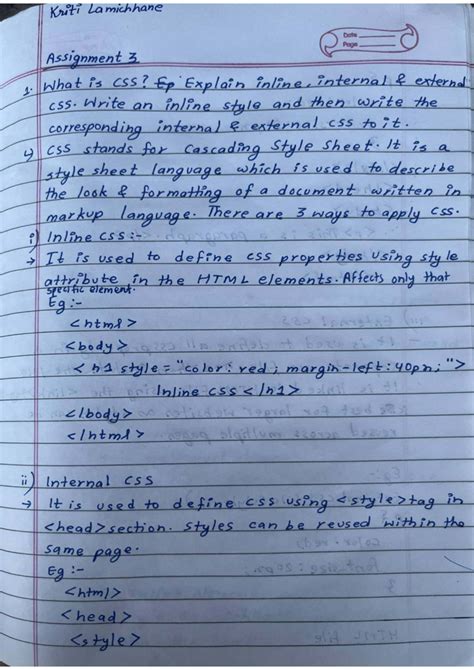 Kriti Lamichhane
Date
Page
Assignment 3
1. What is CSS? Ep Explain inline, internal & external
CSS. Write an inline style and then write the
corresponding internal & external CSS to it.
↳ CSS stands for Cascading Style Sheet. It is a
style sheet language which is used to describe
the look & formatting of a document written in
markup language. There are 3 ways to apply CSS.
i) Inline CSS:-
→ It is used to define CSS properties using style
attribute in the HTML elements. Affects only that
specific element.
Eg:-
<html>
<body>
<h1 style = "color: red; margin-left: 40px;">
Inline CSS </h1>
</body>
</html>
ii) Internal CSS
→ It is used to define CSS using <style> tag in
<head> section. Styles can be reused within the
same page.
Eg:-
<html>
<head>
<style>